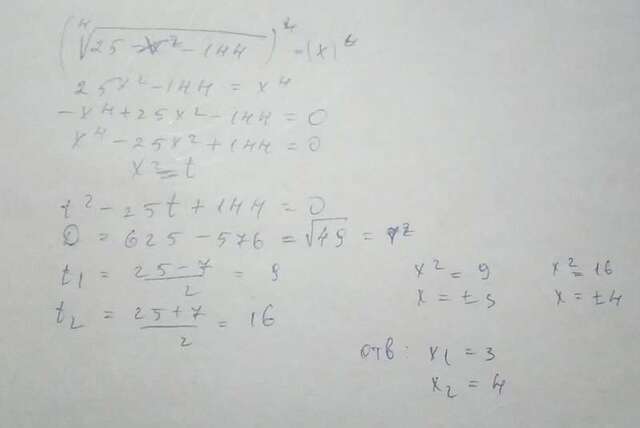 (⁴√25 - x² - 144)⁴ = (x)⁴
25x² - 144 = x⁴
-x⁴ + 25x² - 144 = 0
x⁴ - 25x² + 144 = 0
x² = t
t² - 25t + 144 = 0
D = 625 - 576 = √49 = 7²
t₁ = (25-7)/2 = 9
t₂ = (25+7)/2 = 16
x² = 9
x = ±3
x² = 16
x = ±4
отв: x₁ = 3
x₂ = 4